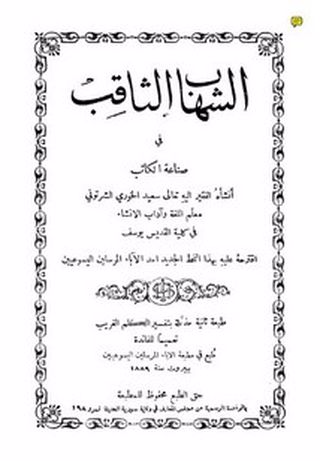 الشهاب الثاقب
في
صناعة الكاتب
أنشأه الفقير اليه تعالى سعيد الخوري الشرتوني
معلم اللغة وآداب الانشاء
في كلية القديس يوسف
اقترحه عليه بهذا النمط الجديد احد الآباء المرسلين اليسوعيين
طبعة ثانية مذيلة بتفسير الكلم الغريب
تعميما للفائدة
طبع في مطبعة الاباء المرسلين اليسوعيين
بيروت سنة ١٨٨٩
حق الطبع محفوظ للمطبعة
بالرخصة الرسمية من مجلس المعارف في ولاية سورية الجليلة نمرو ١٩٨